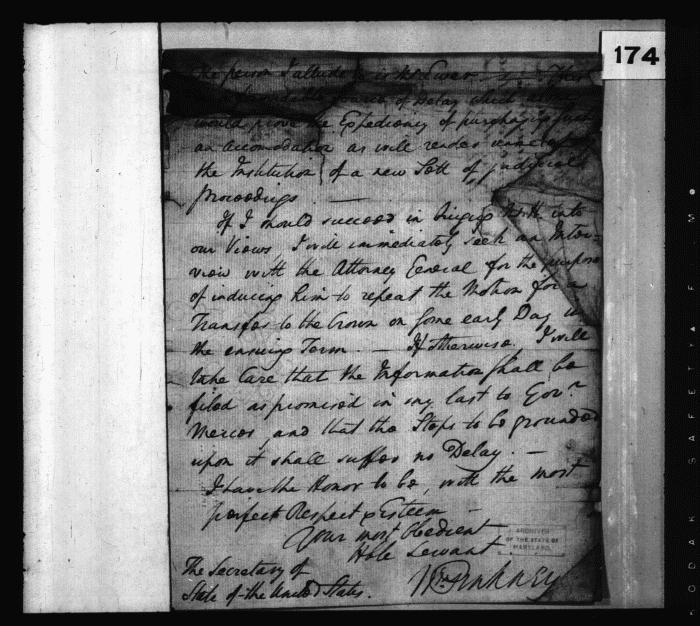 174
the person I allude to is
of Delay which
would prove the Expediency of purchasing such
an accomodation as will render unnecessary
the Institution of a new Sett of judicial
Proceedings. —
If I should succeed in bringing into
our Views, I will immediately seek an Inter-
view with the Attorney General for the purpose
of inducing him to repeat the Motion for a
Transfer to the Crown on some early Day in
the ensuing Term. — If otherwise, I will
take Care that the Information shall be
filed as promised in my last to Govr.
Mercer, and that the Steps to be grounded
upon it shall suffer no Delay. —
I have the Honor to be, with the most
perfect Respect & Esteem —
Your most Obedient
Hble Servant
ARCHIVES
OF THE STATE OF
MARYLAND
Wm Pinkney
The Secretary of
State of the United States.
KODAK SAFETY FILM